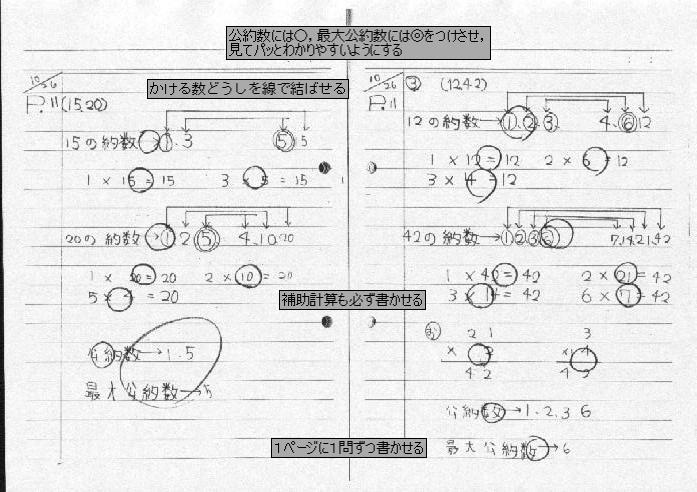 公約数には○，最大公約数には◎をつけさせ，
見てパッとわかりやすいようにする
かける数どうしを線で結ばせる
10/26
P.11 (15.20)
15の約数→1.3 5 15
1 × 15 = 15 3 × 5 = 15
20の約数→1 2 5 4.10.20
1 × 20 = 20 2 × 10 = 20
5 × 4 = 20
公約数→1.5
最大公約数→5
補助計算も必ず書かせる
1ページに1問ずつ書かせる
10/26
P.11
③ (12.42)
12の約数→1.2.3. 4.6.12
1 × 12 = 12 2 × 6 = 12
3 × 4 = 12
42の約数→1 2 3 6 7.14.21.42
1 × 42 = 42 2 × 21 = 42
3 × 14 = 42 6 × 7 = 42
2 1
× 2
4 2
公約数→1.2.3 6
最大公約数→6